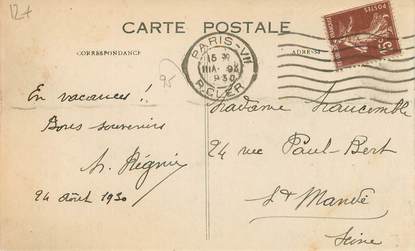 12+
CARTE POSTALE
CORRESPONDANCE
ADRESSE
PARIS-VII
15
1930
R.CLER
POSTES
95
En vacances !!
Bons souvenirs
h. Régnier
24 Août 1930
Madame Haucomble
24 rue Paul-Bert
St Mandé
Seine